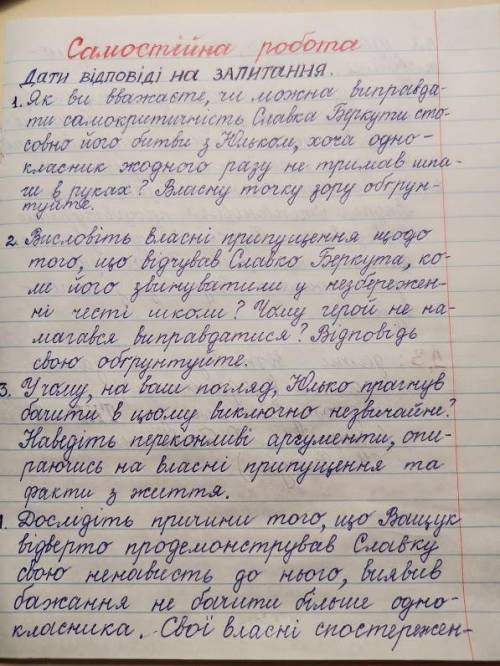 Самостійна робота
Дати відповіді на запитання.
1. Як ви вважаєте, чи можна виправда-
ти самокритичність Славка Беркути сто-
совно його битви з Юльком, хоча одно-
класник жодного разу не тримав шпа-
ги в руках? Власну точку зору обґрун-
туйте.
2. Висловіть власні припущення щодо
того, що відчував Славко Беркута, ко-
ли його звинуватили у незбережен-
ні честі школи? Чому герой не на-
магався виправдатися? Відповідь
свою обґрунтуйте.
3. У чому, на ваш погляд, Юлько прагнув
бачити в цьому виключно незвичайне?
Наведіть переконливі аргументи, опи-
раючись на власні припущення та
факти з життя.
Дослідіть причини того, що Ващук
відверто продемонстрував Славку
свою ненависть до нього, виявив
бажання не бачити більше одно-
класника. Свої власні спостережен-